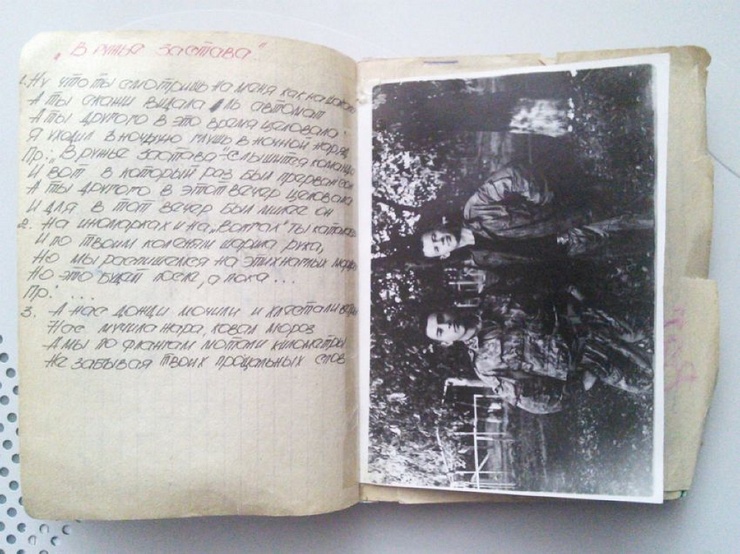 "В ружье застава"
1. Ну что ты смотришь на меня как на
А ты скажи видала ль автомат
А ты другого в это время целовала
Я уходил в ночную глушь в ночной наряд
Пр: "В ружье застава" слышится команда
И вот в который раз был прерван сон
А ты другого в этот вечер целовала
И для в тот вечер был милее он
2. На иномарках и на "Волгах" ты каталась
И по твоим коленям шарила рука,
Но мы распишемся на этих нарных
Но это будет после, а пока...
Пр: ...
3. А нас дожди мочили и хлестали
Нас мучила жара, ковал мороз
А мы по флангам мотали километры
Не забывая твоих прощальных слов